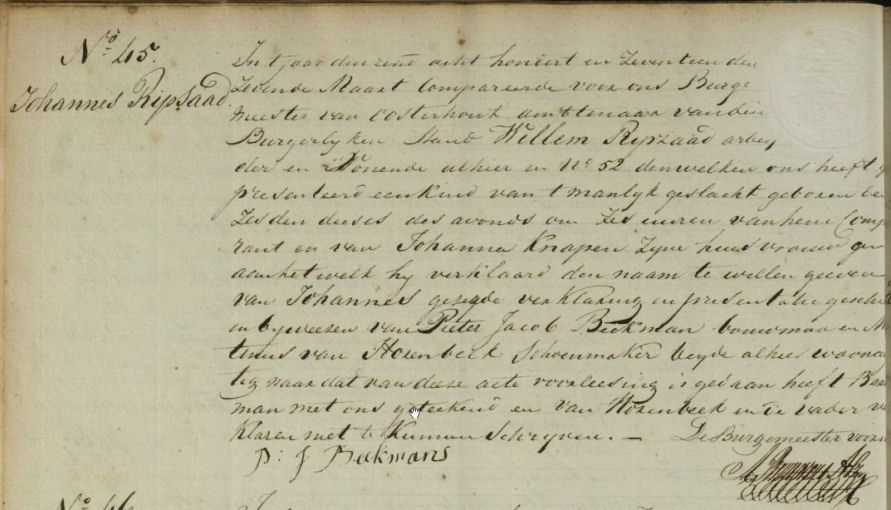 No. 45.
Johannes Ripsaad.
In t jaar den een acht hondert en Zeventeen den
Zevende Maart Compareerde voor ons Burge
meester van Oosterhout ambtenaar van den
Burgerlyken Stand Willem Ripzaad arbey
der en Wonende alhier en No 52 denwelken ons heeft g
presenteerd een kind van t manlyk geslacht geboren
Zesden deeses des avonds om Zes uuren van hem Comp
rant en van Johanna Knapen Zyne huis vrouw en
aan het welk hy verklaard den naam te willen geeven
van Johannes gezegde verklaring en presentatie geschied
in byweesen van Pieter Jacob Beekman bouwman en M
tinus van Hosenbeek Schoenmaker beyde alhier woonac
tig naar dat van deese acte voorleesing is gedaan heeft Bee
man met ons geteekend en van Hosenbeek en de vader ve
klaren niet te Kunnen Schryven. — De Burgemeester voorn
P: J Beekmans
No. 46